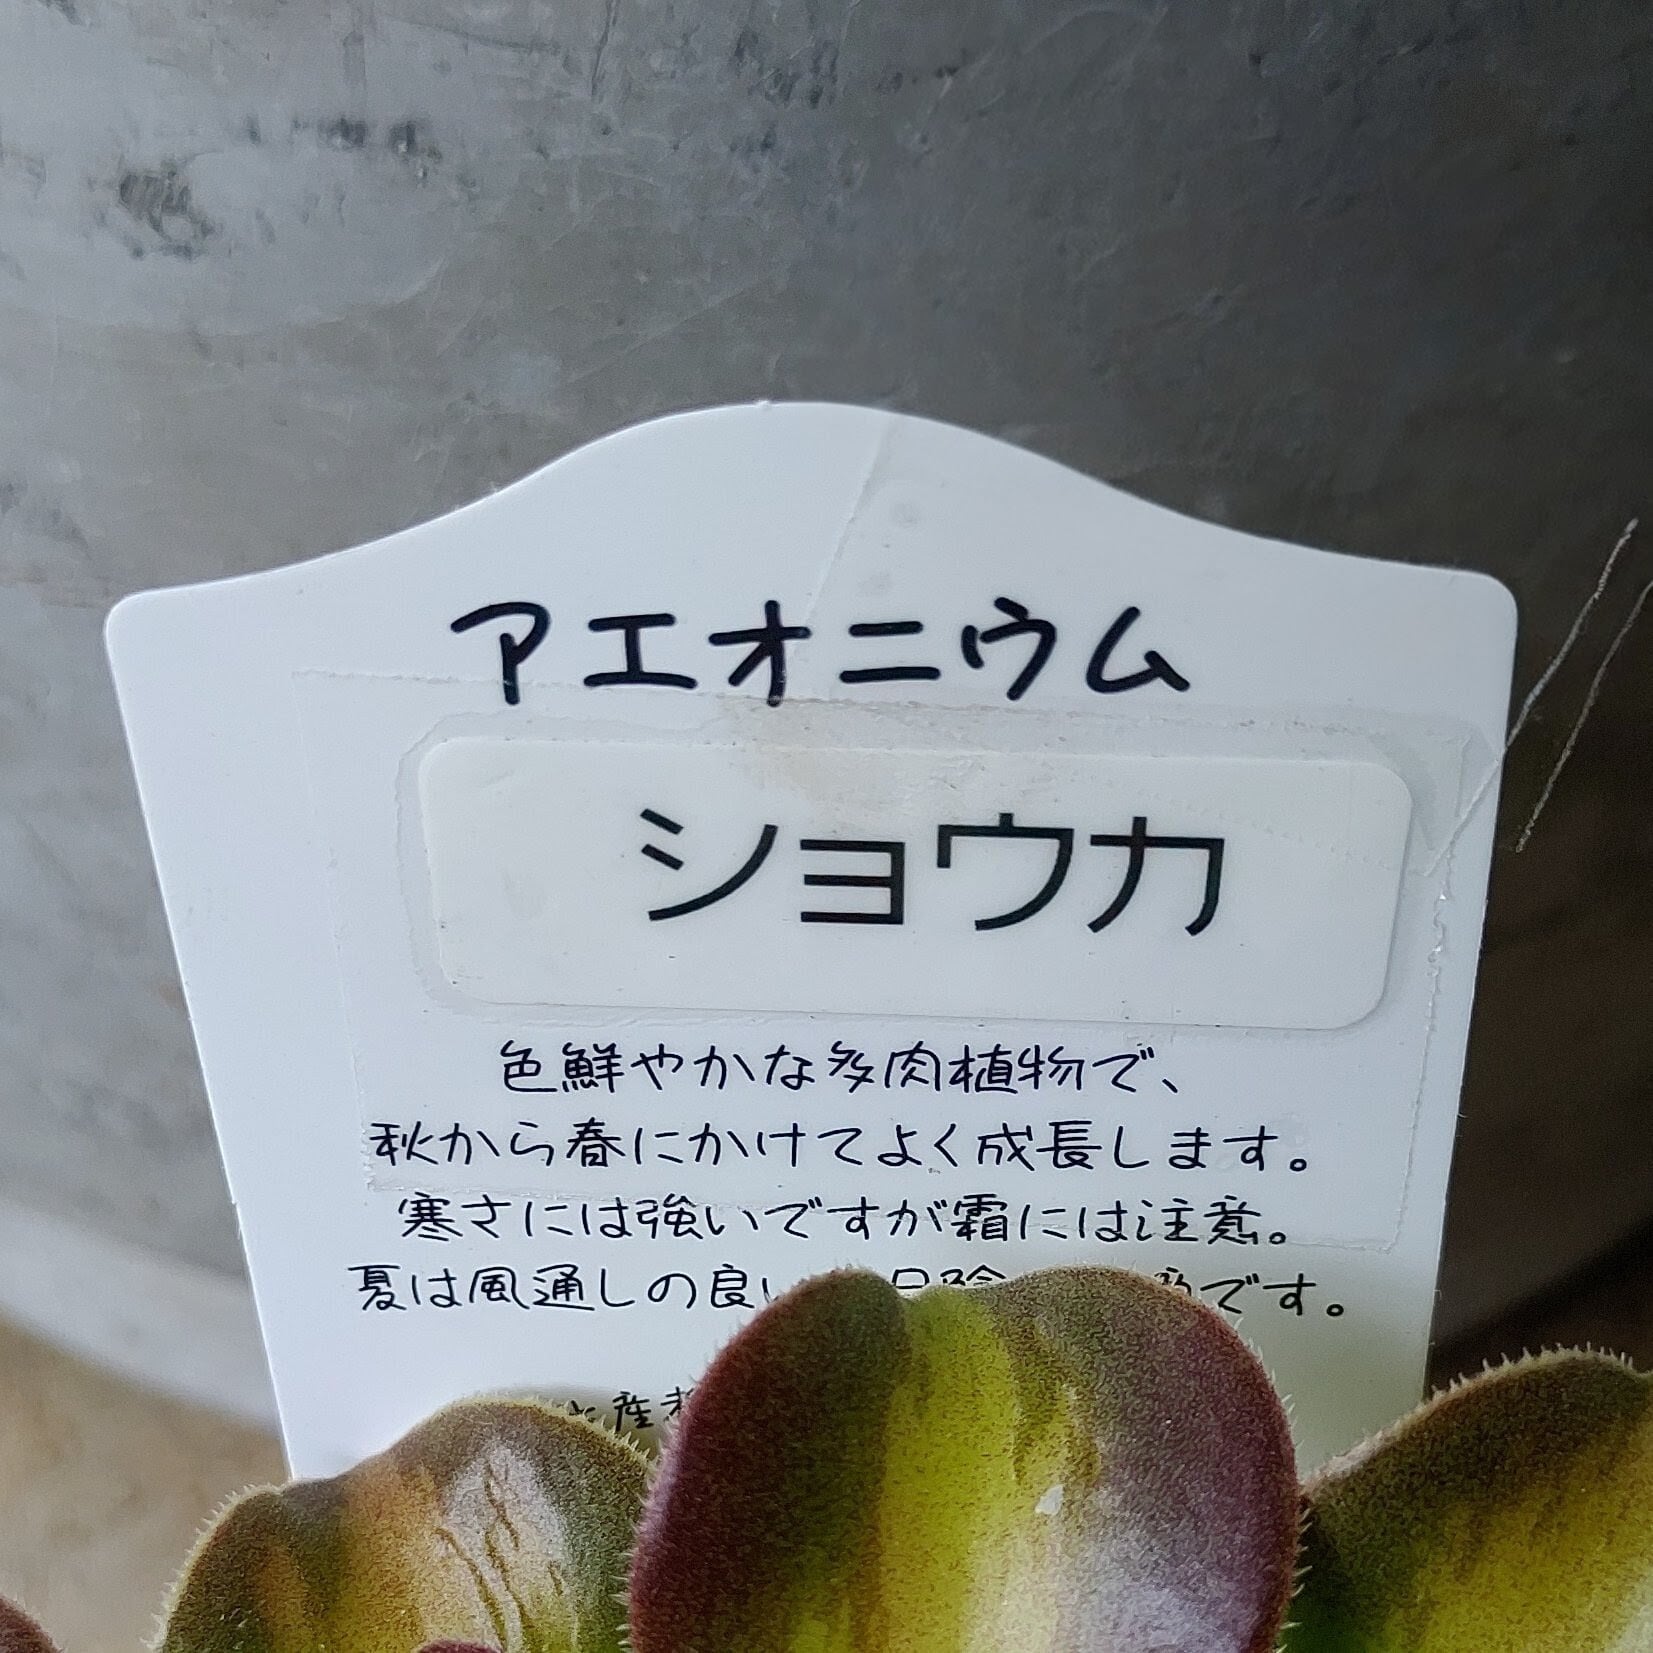 アエオニウム
ショウカ
色鮮やかな多肉植物で、
秋から春にかけてよく成長します。
寒さには強いですが霜には注意。
夏は風通しの良い です。
産